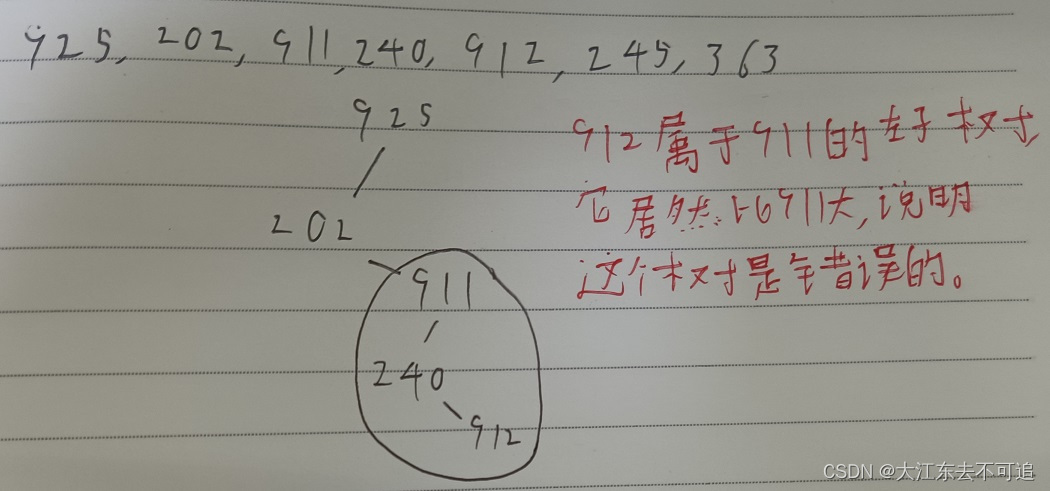 925, 202, 911, 240, 912, 245, 363
925
202
911
240
912
912属于911的左子树,
它居然比911大,说明
这个树是错误的。
CSDN @大江东去不可追